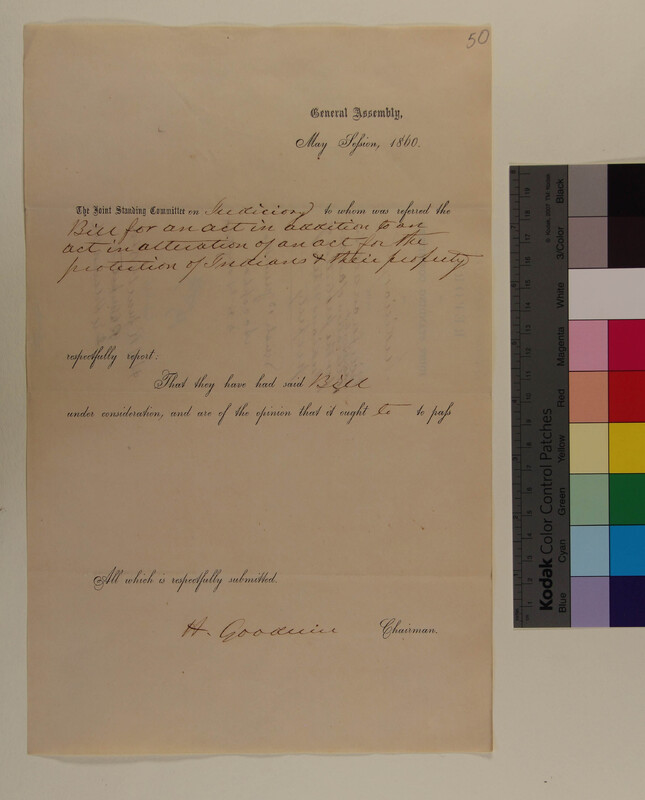 50
General Assembly,
May Session, 1860.
The Joint Standing Committee on Judiciary to whom was referred the
Bill for an act in addition to an
act in alteration of an act for the
protection of Indians & their property
respectfully report:
That they have had said Bill
under consideration, and are of the opinion that it ought to to pass
All which is respectfully submitted.
H. Goodwin Chairman.
Kodak Color Control Patches
Blue Cyan Green Yellow Red Magenta White 3/Color Black